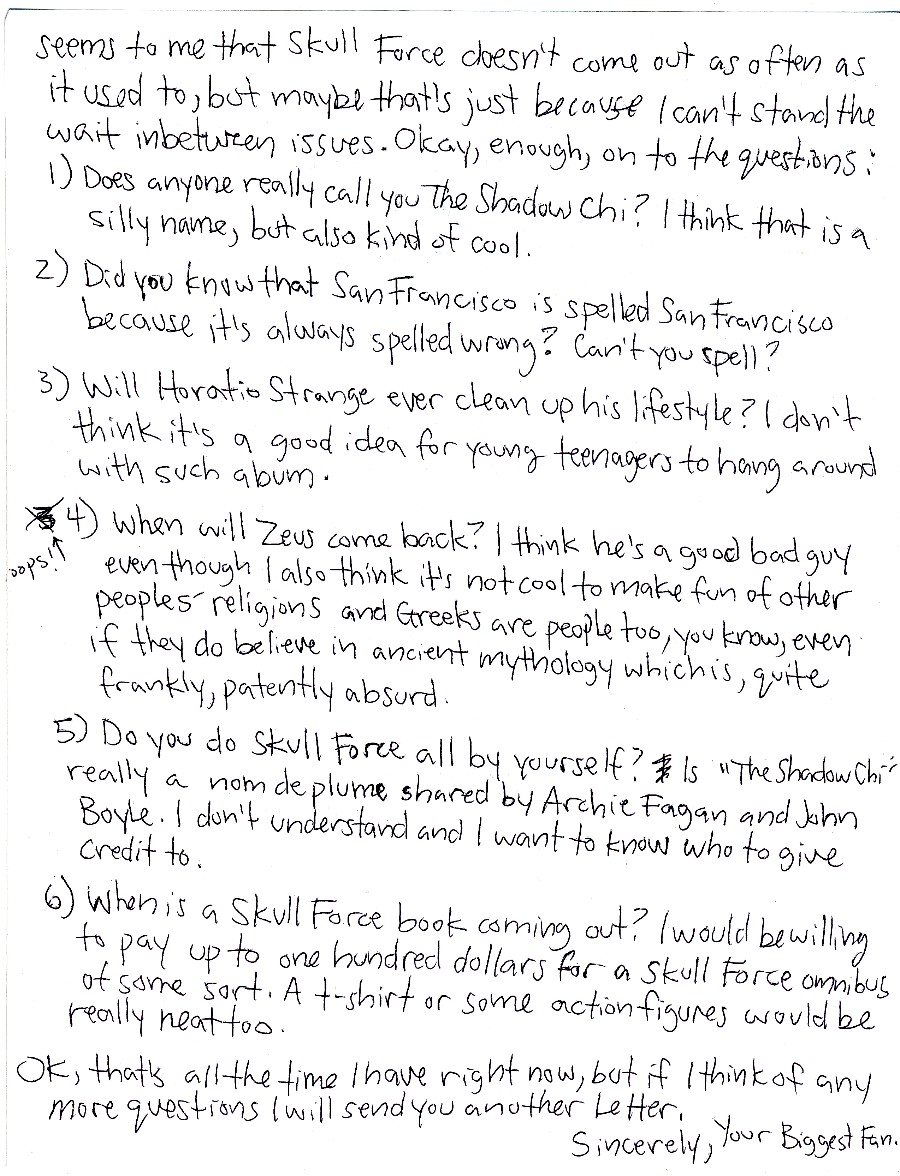 seems to me that Skull Force doesn't come out as often as
it used to, but maybe that's just because I can't stand the
wait inbetween issues. Okay, enough, on to the questions:
1) Does anyone really call you The Shadow Chi? I think that is a
silly name, but also kind of cool.
2) Did you know that San Francisco is spelled San Francisco
because it's always spelled wrong? Can't you spell?
3) Will Horatio Strange ever clean up his lifestyle? I don't
think it's a good idea for young teenagers to hang around
with such a bum.
4) When will Zeus come back? I think he's a good bad guy
oops!! even though I also think it's not cool to make fun of other
peoples' religions and Greeks are people too, you know, even
if they do believe in ancient mythology which is, quite
frankly, patently absurd.
5) Do you do Skull Force all by yourself? Is "The Shadow Chi"
really a nom de plume shared by Archie Fagan and John
Boyle. I don't understand and I want to know who to give
credit to.
6) When is a Skull Force book coming out? I would be willing
to pay up to one hundred dollars for a Skull Force omnibus
of some sort. A t-shirt or some action figures would be
really neat too.
OK, that's all the time I have right now, but if I think of any
more questions I will send you another Letter.
Sincerely, Your Biggest Fan.